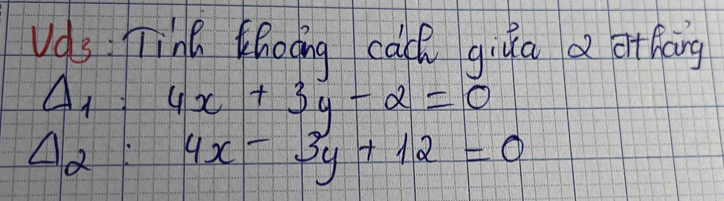 Vd3: Tính khoảng cách giữa 2 đthẳng
Δ₁ : 4x + 3y - 2 = 0
Δ₂ : 4x - 3y + 12 = 0